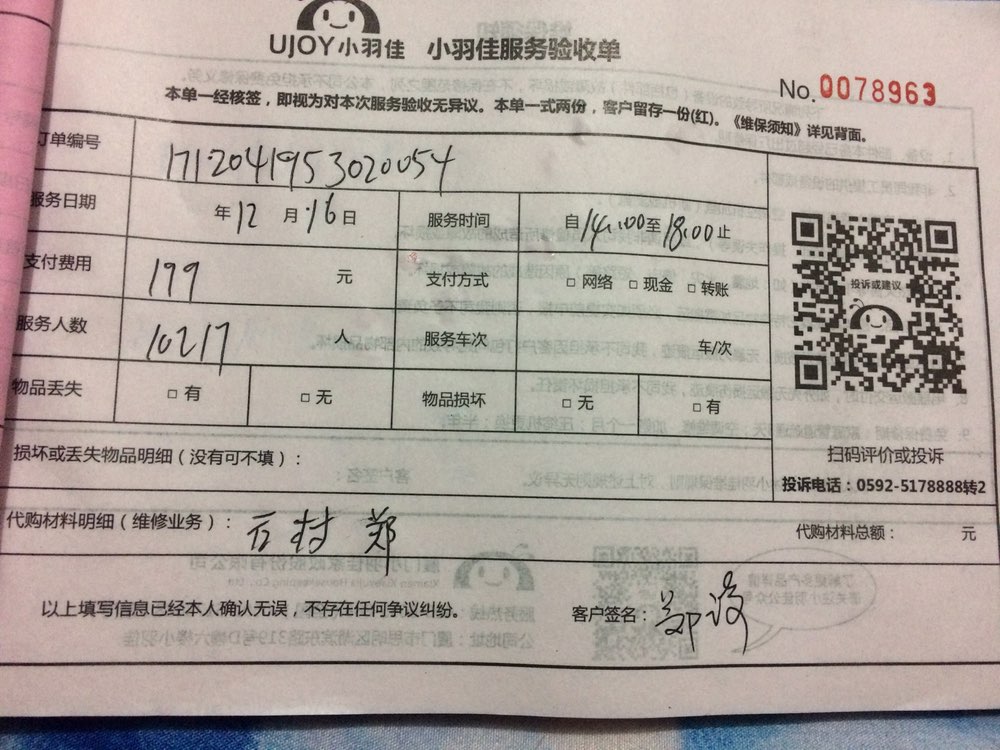 UJOY小羽佳 小羽佳服务验收单
No.0078963
本单一经核签，即视为对本次服务验收无异议。本单一式两份，客户留存一份(红)。《维保须知》详见背面。
订单编号 1712041953020054
服务日期 年12月16日 服务时间 自14:00至18:00止
支付费用 199 元 支付方式 □ 网络 □ 现金 □ 转账
服务人数 10217 人 服务车次 车/次
物品丢失 □ 有 □ 无 物品损坏 □ 无 □ 有
投诉或建议
扫码评价或投诉
投诉电话：0592-5178888转2
损坏或丢失物品明细（没有可不填）：
代购材料明细（维修业务）： 郑 代购材料总额： 元
以上填写信息已经本人确认无误，不存在任何争议纠纷。 客户签名：郑